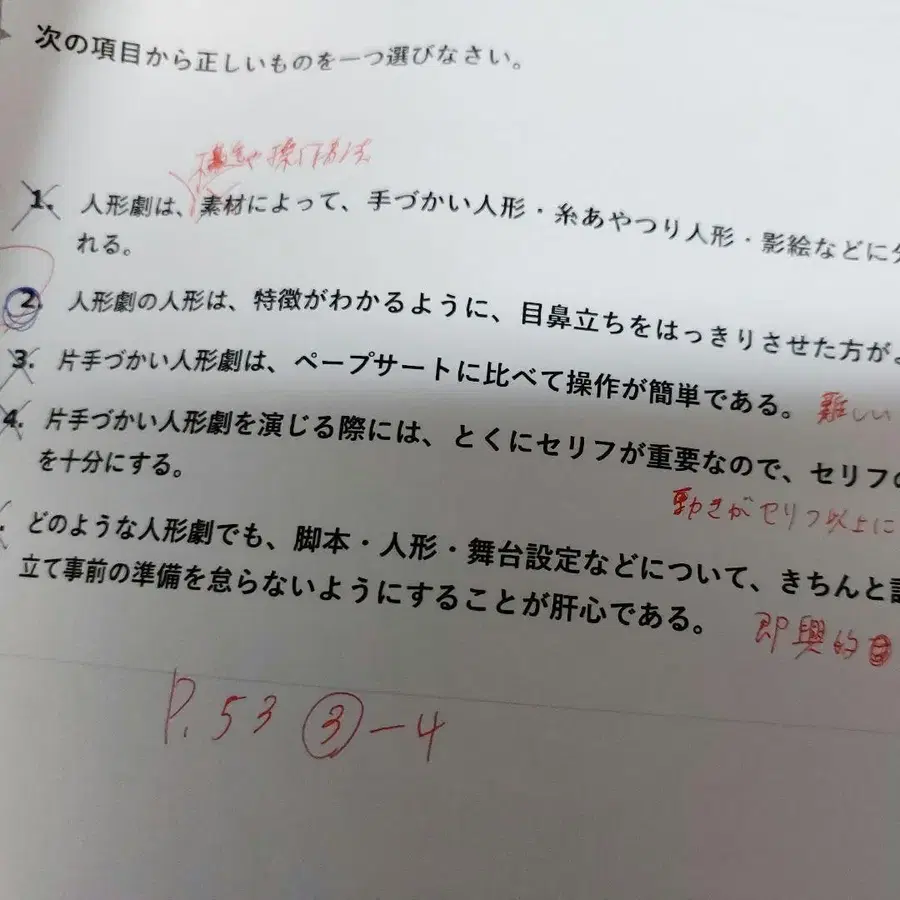 次の項目から正しいものを一つ選びなさい。
構造や操作方法
1. 人形劇は、素材によって、手づかい人形・糸あやつり人形・影絵などに分
れる。
2. 人形劇の人形は、特徴がわかるように、目鼻立ちをはっきりさせた方がよ
3. 片手づかい人形劇は、ペープサートに比べて操作が簡単である。 難しい
4. 片手づかい人形劇を演じる際には、とくにセリフが重要なので、セリフの
を十分にする。
動きがセリフ以上に
どのような人形劇でも、脚本・人形・舞台設定などについて、きちんと計
立て事前の準備を怠らないようにすることが肝心である。
即興的
P.53 ③-4